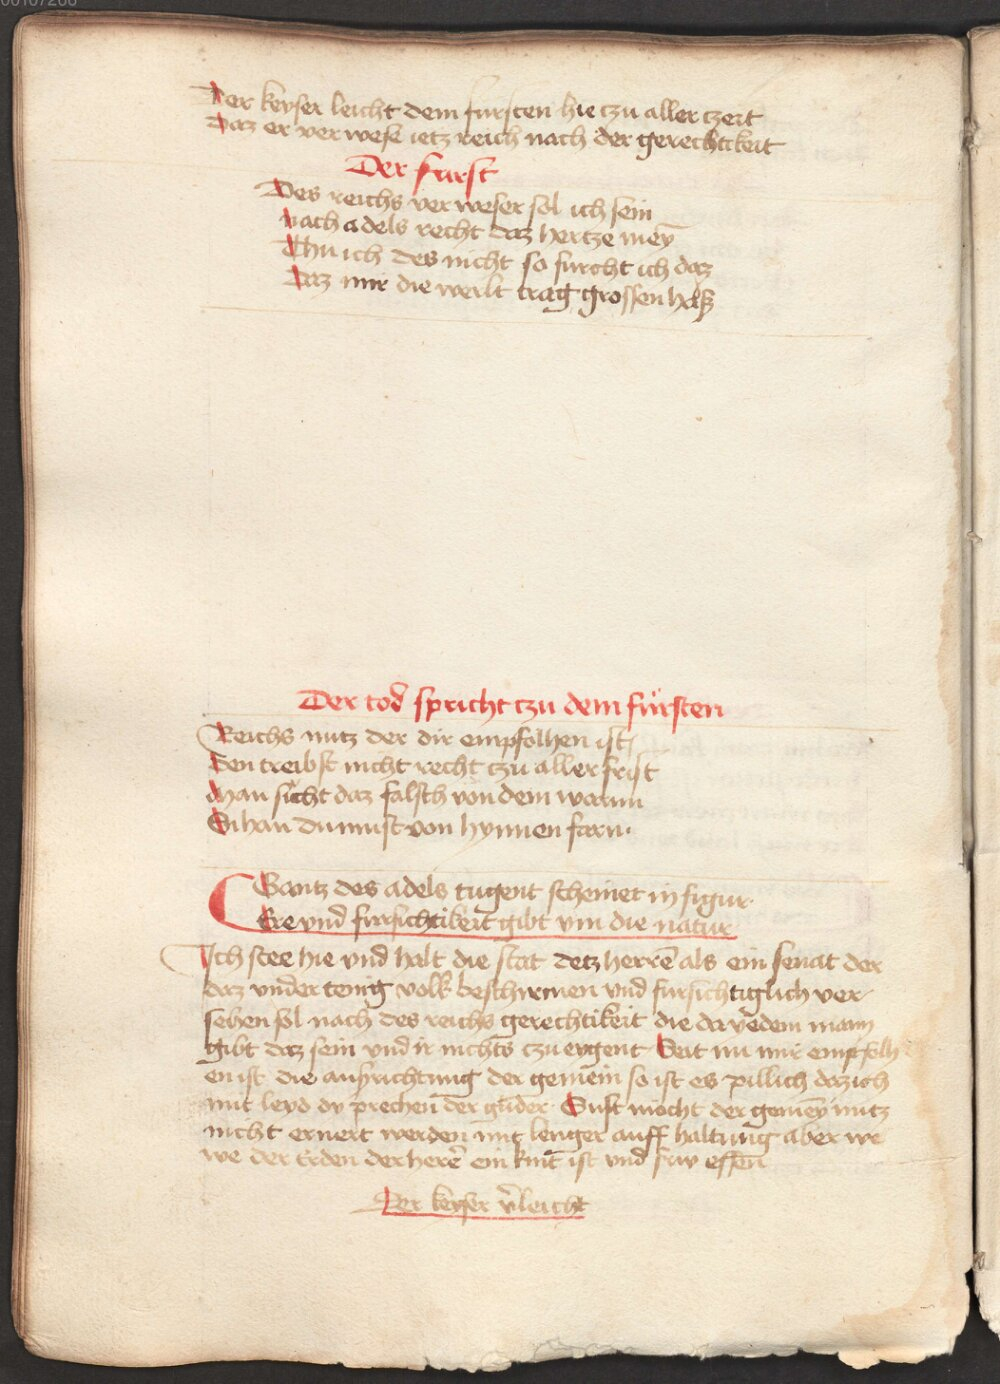 00107266
Der keyser leicht dem fursten hie tzu aller tzeit
Daz er verwese ietz reich nach der gerechtikeit
Der furst
Des reichs verweser sol ich sein
Nach adels recht daz hertze meȳ
Thu ich des nicht so furcht ich daz
Daz mir die werlt trag grossen haß
Der tod spricht tzu dem fürsten
Reichs nutz der dir empfolhen ist
Den treibst nicht recht tzu aller frist
Man sicht daz falsch von dem warnn
Du must von hynnen farn
Gantz des adels tugent scheinet in figur
Ere vnd fursichtikeit gibt vm die natur
Ich stee hie vnd halt die stat detz herrē als ein senat der
daz vnder tenig volk beschirmen vnd fursichtiglich ver
sehen sol nach des reichs gerechtikeit die da yedem mann
gibt daz sein vnd ir nichts tzu eygent Seit nu mir empfolh
en ist die aufrichtung der gemein so ist es pillich daz ich
mit leyd prechen der Sust mocht der gemeȳ nutz
nicht ernert werden mit lenger auff haltung aber we
we der erden der herē ein kint ist vnd fru essen
Der keyser v̄leicht